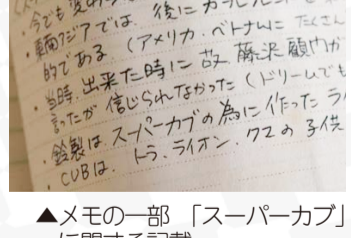 ・今でも変わ
・東南アジアでは、後にカラ
的である (アメリカ・ベトナムに たくさん
・当時、出来た時に 故 藤沢顧問が
言ったが 信じられなかった (ドリームでも
・鈴製は、スーパーカブの為に作った ラ
・CUBは、トラ、ライオン、クマの子供
▲メモの一部 「スーパーカブ」
に関する記載